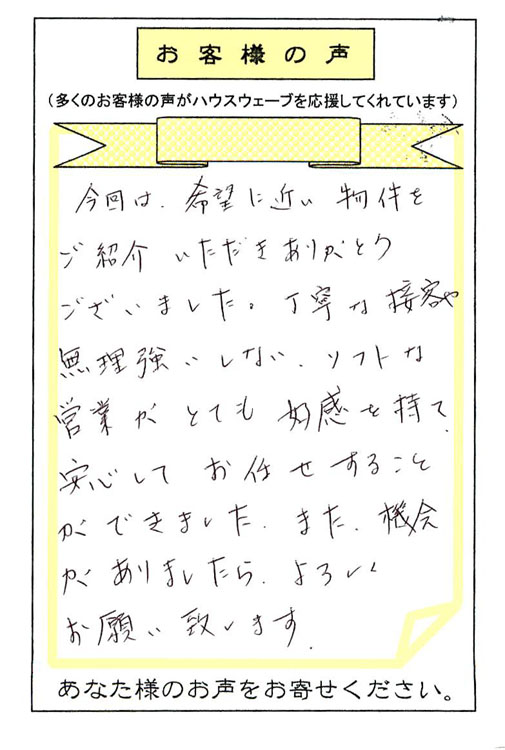 お客様の声
(多くのお客様の声がハウスウェーブを応援してくれています)
今回は、希望に近い物件を
ご紹介いただきありがとう
ございました。丁寧な接客や
無理強いしない、ソフトな
営業がとても好感を持て、
安心してお任せすること
ができました。また、機会
がありましたら、よろしく
お願い致します。
あなた様のお声をお寄せください。